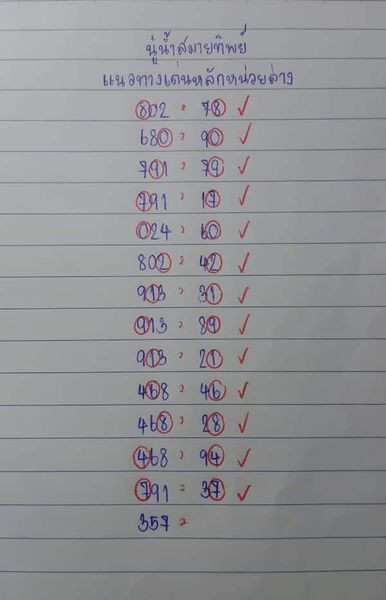 นู๋น้ำสมายทิพย์
แนวทางเด่นหลักหน่วยล่าง
802 = 78 ✓
680 = 90 ✓
791 = 79 ✓
791 = 17 ✓
024 = 60 ✓
802 = 42 ✓
913 = 31 ✓
913 = 89 ✓
913 = 21 ✓
468 = 46 ✓
468 = 28 ✓
468 = 94 ✓
791 = 37 ✓
357 =